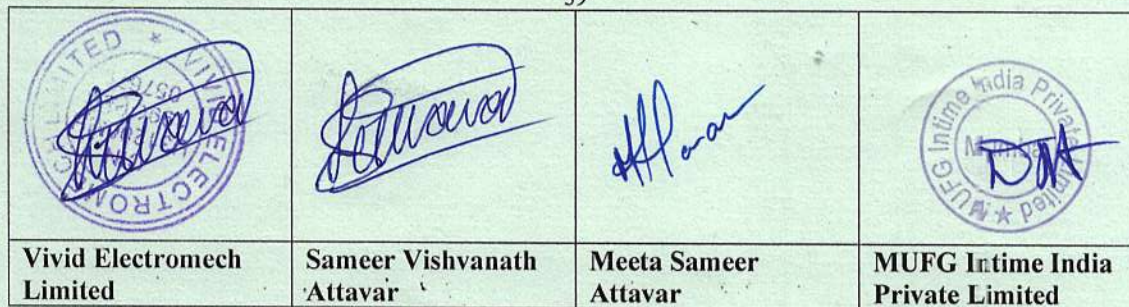 VIVID ELECTROMECH LIMITED
Attavar
Attavar
MUFG Intime India Private Limited
Mumbai
Vivid Electromech
Limited
Sameer Vishvanath
Attavar
Meeta Sameer
Attavar
MUFG Intime India
Private Limited